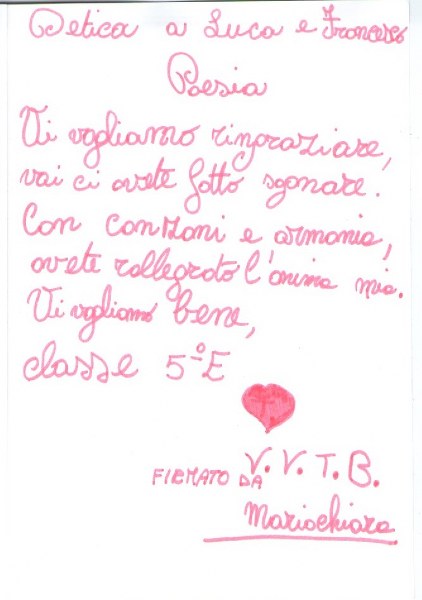 Detica a Luca e Francesco
Poesia
Vi vogliamo ringraziare,
voi ci avete fatto sgonare.
Con canzoni e armonia,
avete rallegrato l'anima mia.
Vi vogliamo bene,
classe 5ºE
V.V.T.B.
FIRMATO DA
Mariachiara